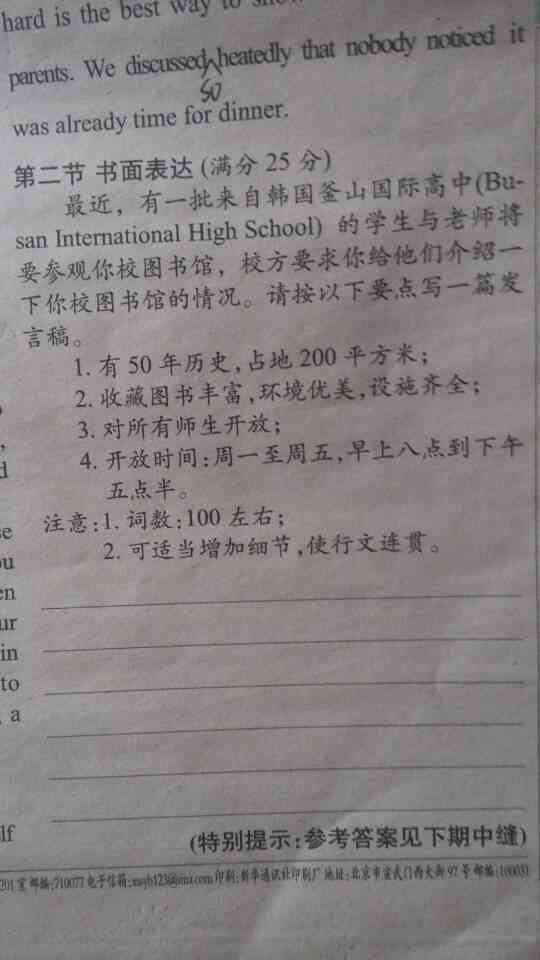 hard is the best way to show
parents. We discussed heatedly that nobody noticed it
so
was already time for dinner.
第二节 书面表达 (满分 25 分)
最近，有一批来自韩国釜山国际高中(Bu-
san International High School) 的学生与老师将
要参观你校图书馆，校方要求你给他们介绍一
下你校图书馆的情况。请按以下要点写一篇发
言稿。
1. 有 50 年历史,占地 200 平方米；
2. 收藏图书丰富,环境优美,设施齐全；
3. 对所有师生开放；
4. 开放时间:周一至周五,早上八点到下午
五点半。
注意:1. 词数:100 左右；
2. 可适当增加细节,使行文连贯。
d
se
ou
en
ur
in
to
a
lf
(特别提示:参考答案见下期中缝)
201 室 邮编:710077 电子信箱: 印刷:新华通讯社印刷厂 地址:北京市宣武门西大街 97 号 邮编:100031